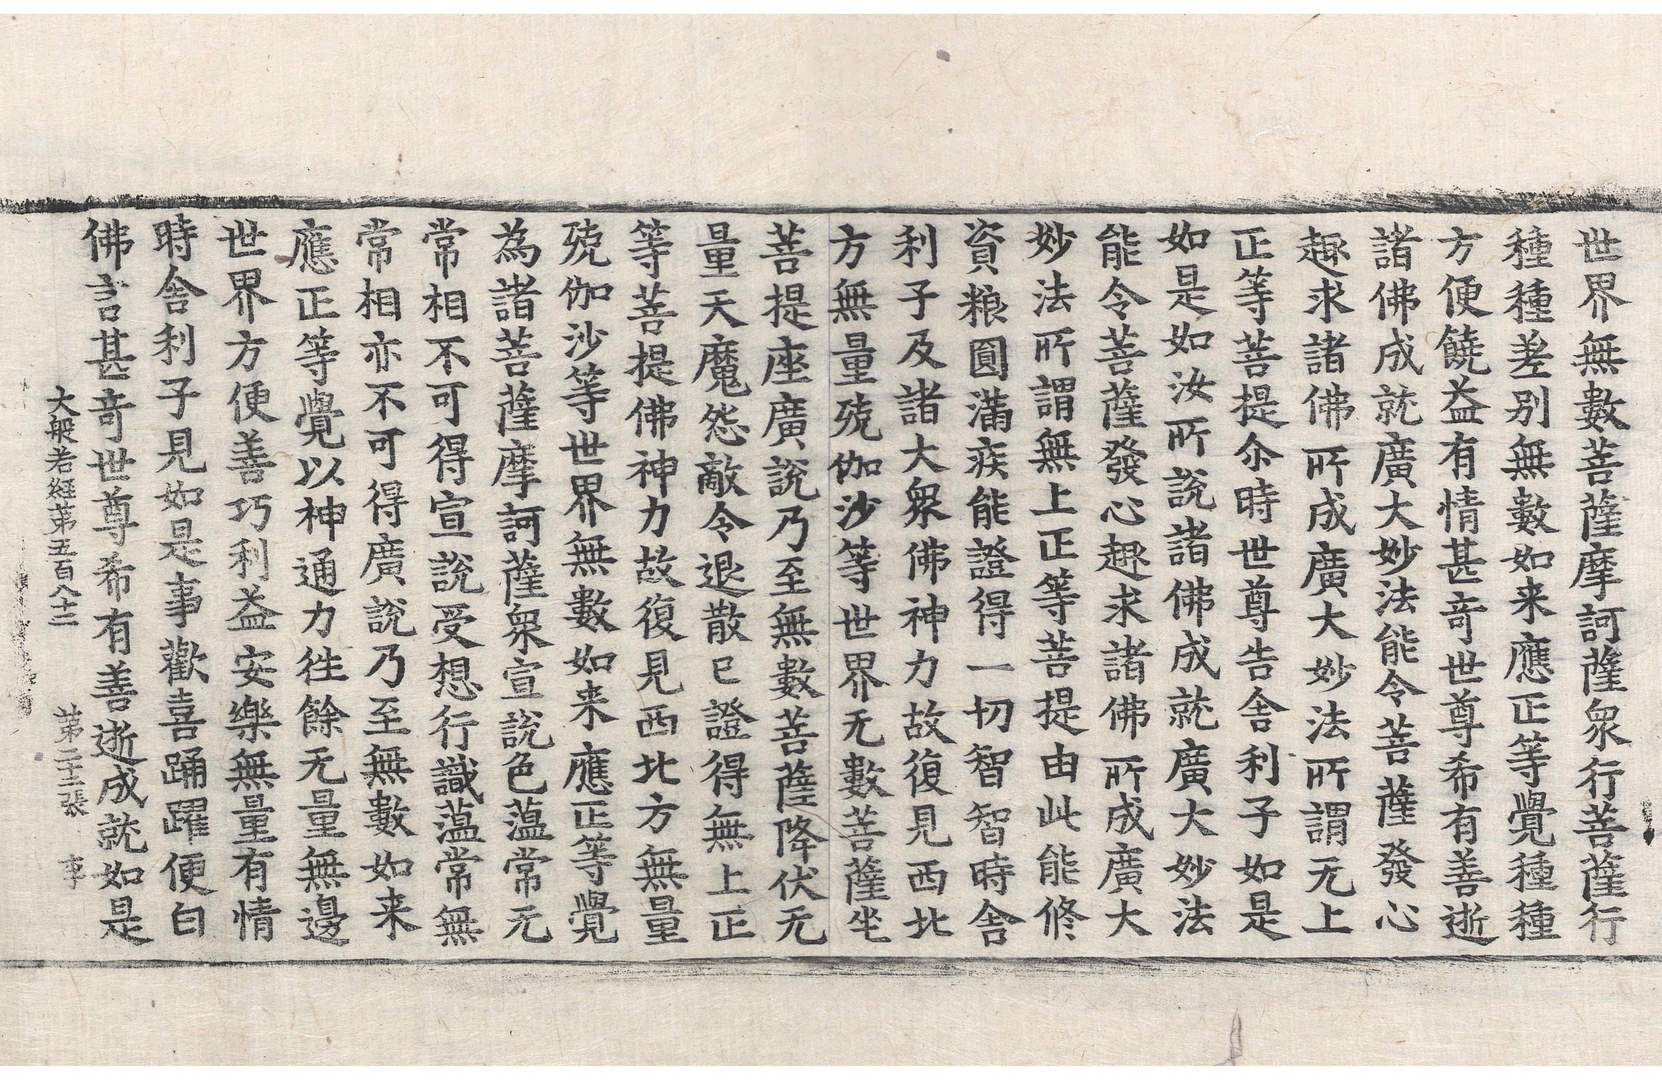 世界無數菩薩摩訶薩衆行菩薩行
種種差別無數如来應正等覺種種
方便饒益有情甚竒世尊希有善逝
諸佛成就廣大妙法能令菩薩發心
趣求諸佛所成廣大妙法所謂无上
正等菩提尒時世尊告舍利子如是
如是如汝所說諸佛成就廣大妙法
能令菩薩發心趣求諸佛所成廣大
妙法所謂無上正等菩提由此能修
資粮圓滿疾能證得一切智智時舍
利子及諸大衆佛神力故復見西北
方無量殑伽沙等世界无數菩薩坐
菩提座廣說乃至無數菩薩降伏无
量天魔怨敵令退散已證得無上正
等菩提佛神力故復見西北方無量
殑伽沙等世界無數如来應正等覺
為諸菩薩摩訶薩衆宣說色蘊常无
常相不可得宣說受想行識蘊常無
常相亦不可得廣說乃至無數如来
應正等覺以神通力徃餘无量無邊
世界方便善巧利益安樂無量有情
時舍利子見如是事歡喜踊躍便白
佛言甚竒世尊希有善逝成就如是
大般若經第五百八十二 第二十三張 李